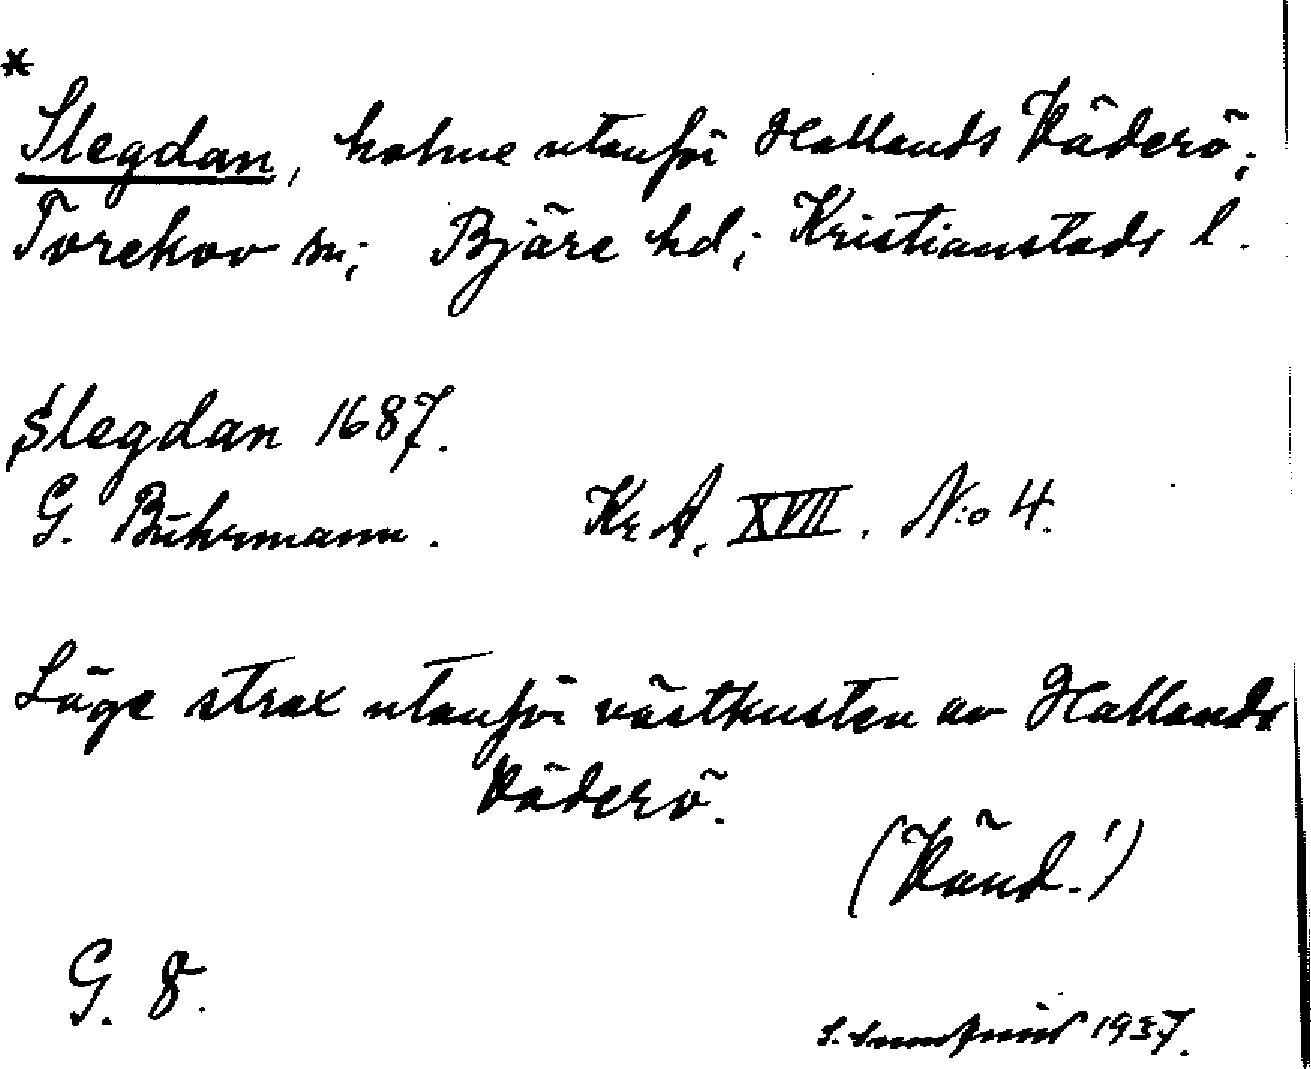 *
Slegdan, holme utanför Hallands Väderö;
Torekov sn; Bjäre hd; Kristianstads l.
Slegdan 1687.
G. Buhrmann. Kr A. XVII. N:o 4.
Läge strax utanför västkusten av Hallands
Väderö.
(Vänd!)
G. 8.
S. 1937.